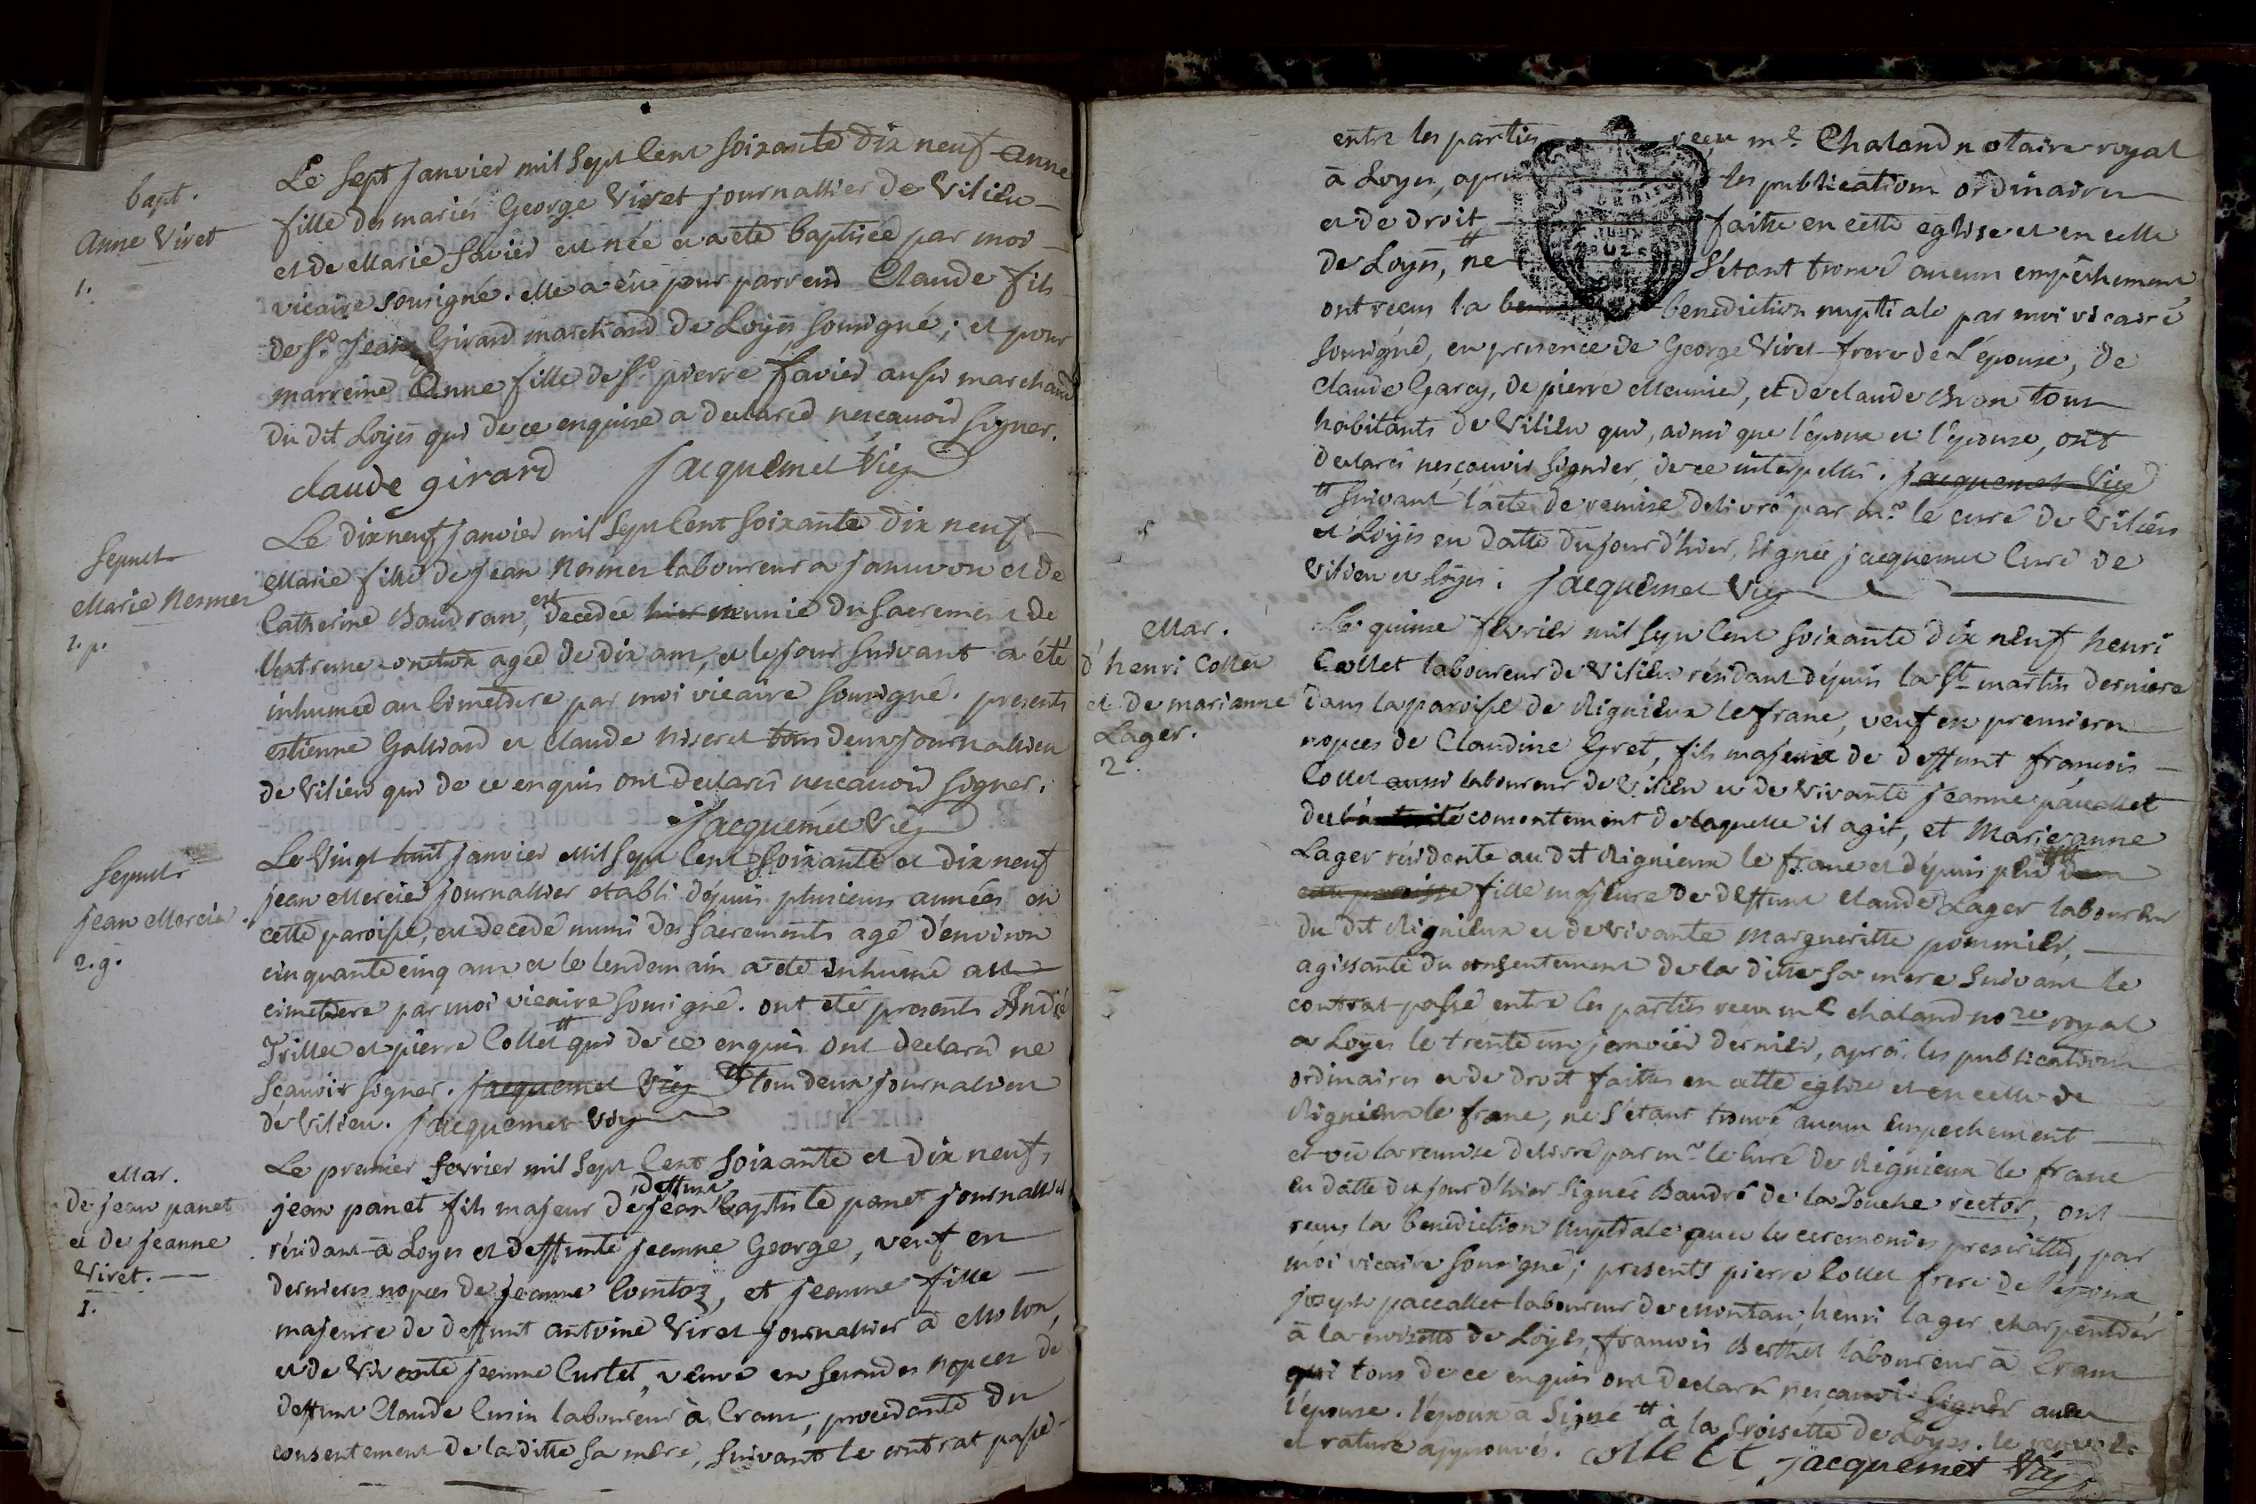 bapt.
Anne Viret
1.
Le sept janvier mil sept cent soixante dix neuf Anne
fille des mariés George Viret journallier de Vilieu
et de Marie Favier est née et a eté baptisée par moi
vicaire sousigné. elle a eu pour parrein Claude fils
de Sr. Jean Girard marchand de Loyes sousigné; et pour
marreine Anne fille de Sr. pierre favier aussi marchand
du dit Loyes qui de ce enquise a declaree nescavoir signer.
claude girard Jacquemet Vic
Sepult
Marie Nesmes
1. p.
Le dixneuf janvier mil sept cent soixante dix neuf
Marie fille de jean Nesmes laboureur a janivon et de
Catherine Baudran, est decedée hier munie du sacrement de
l'extreme onction agée de dix ans, et le jour suivant a été
inhumée au cimetiere par moi vicaire sousigné. presents
estienne Galliard et claude Niseret tous deux journaliers
de Vilieu qui de ce enquis ont declarés nescavoir signer.
Jacquemet Vic
Sepult
jean Mercier
2. g.
Le Vingt huit janvier Mil sept cent soixante et dix neuf
jean Mercier journallier etabli dépuis plusieurs années en
cette paroisse, est decedé muni des sacrements agé d'environ
cinquante cinq ans et le lendemain a été inhumé au
cimetiere par moi vicaire sousigné. ont eté presents André
Trillet et pierre Collet # qui de ce enquis ont declarés ne
scavoir signer. Jacquemet Vic # tous deux journaliers
de Vilieu. Jacquemet Vic
Mar.
de jean panet
et de jeanne
Viret.
1.
Le premier fevrier mil sept cent soixante et dix neuf,
jean panet fils majeur de deffunt jean baptiste panet journallier
résidant à Loyes et deffunte jeanne George, veuf en
dernieres nopces de jeanne Comtoz, et jeanne fille
majeure de deffunt antoine Viret journallier à Molon,
et de vivante jeanne Curtet, veuve en secondes nopces de
deffunt Claude Cusin laboureur à Crans, procedante du
consentement de la ditte sa mere, suivant le contrat passé
entre les parties reçu me. Chaland notaire royal
à Loyes, apres les publications ordinaires
et de droit faitte en cette eglise et en celle
de Loyes, # ne s'étant trouvé aucun empêchement
ont reçus la benediction nuptiale par moi vicaire
sousigné, en presence de George Viret frere de l'épouse, de
claude Garcy, de pierre Meunier, et de claude Bron tous
habitants de Vilieu qui, ainsi que l'époux et l'épouse, ont
declarés nesçavoir signer, de ce interpellés. Jacquemet Vic
# suivant l'acte de remise delivré par mr. le curé de Vilieu
et Loyes en datte du jour d'hier, signée jacquemet Curé de
Vilieu et Loyes. Jacquemet Vic
Mar.
d'henri Collet
et de marianne
Lager.
2.
Le quinse fevrier mil sept cent soixante dix neuf henri
Collet laboureur de Vilieu résidant dépuis la St. martin derniere
dans la paroisse de Rignieux le franc, veuf en premieres
nopces de Claudine Gret, fils majeur de deffunt françois
Collet aussi laboureur de Vilieu et de vivante jeanne pacallet
du consentement de laquelle il agit, et Marieanne
Lager résidente au dit Rignieux le franc et dépuis peu
cette paroisse fille majeure de deffunt claude Lager laboureur
du dit Rignieux et de vivante margueritte pommier,
agissante du consentement de la ditte sa mere suivant le
contrat passé entre les parties recu me chaland nore royal
a Loyes le trente un janvier dernier, après les publications
ordinaires et de droit faittes en cette eglise et en celle de
Rignieux le franc, ne s'étant trouvé aucun empechement
et vû la remise delivré par mr. le curé de Rignieux le franc
en datte du jour d'hier signée Baudré de la Touche rector, ont
reçus la benediction nuptiale avec les ceremonies prescrittes, par
moi vicaire sousigné; presents pierre Collet frere de l'époux
joseph paccallet laboureur de Montan; henri lager charpentier
à la croisette de Loyes, francois Berthet laboureur à Crans
qui tous de ce enquis ont declarés nesçavoir signer avec
l'épouse. l'époux a signé # à la Croisette de Loyes. le renvoi
et rature approuvés. Collet Jacquemet Vic